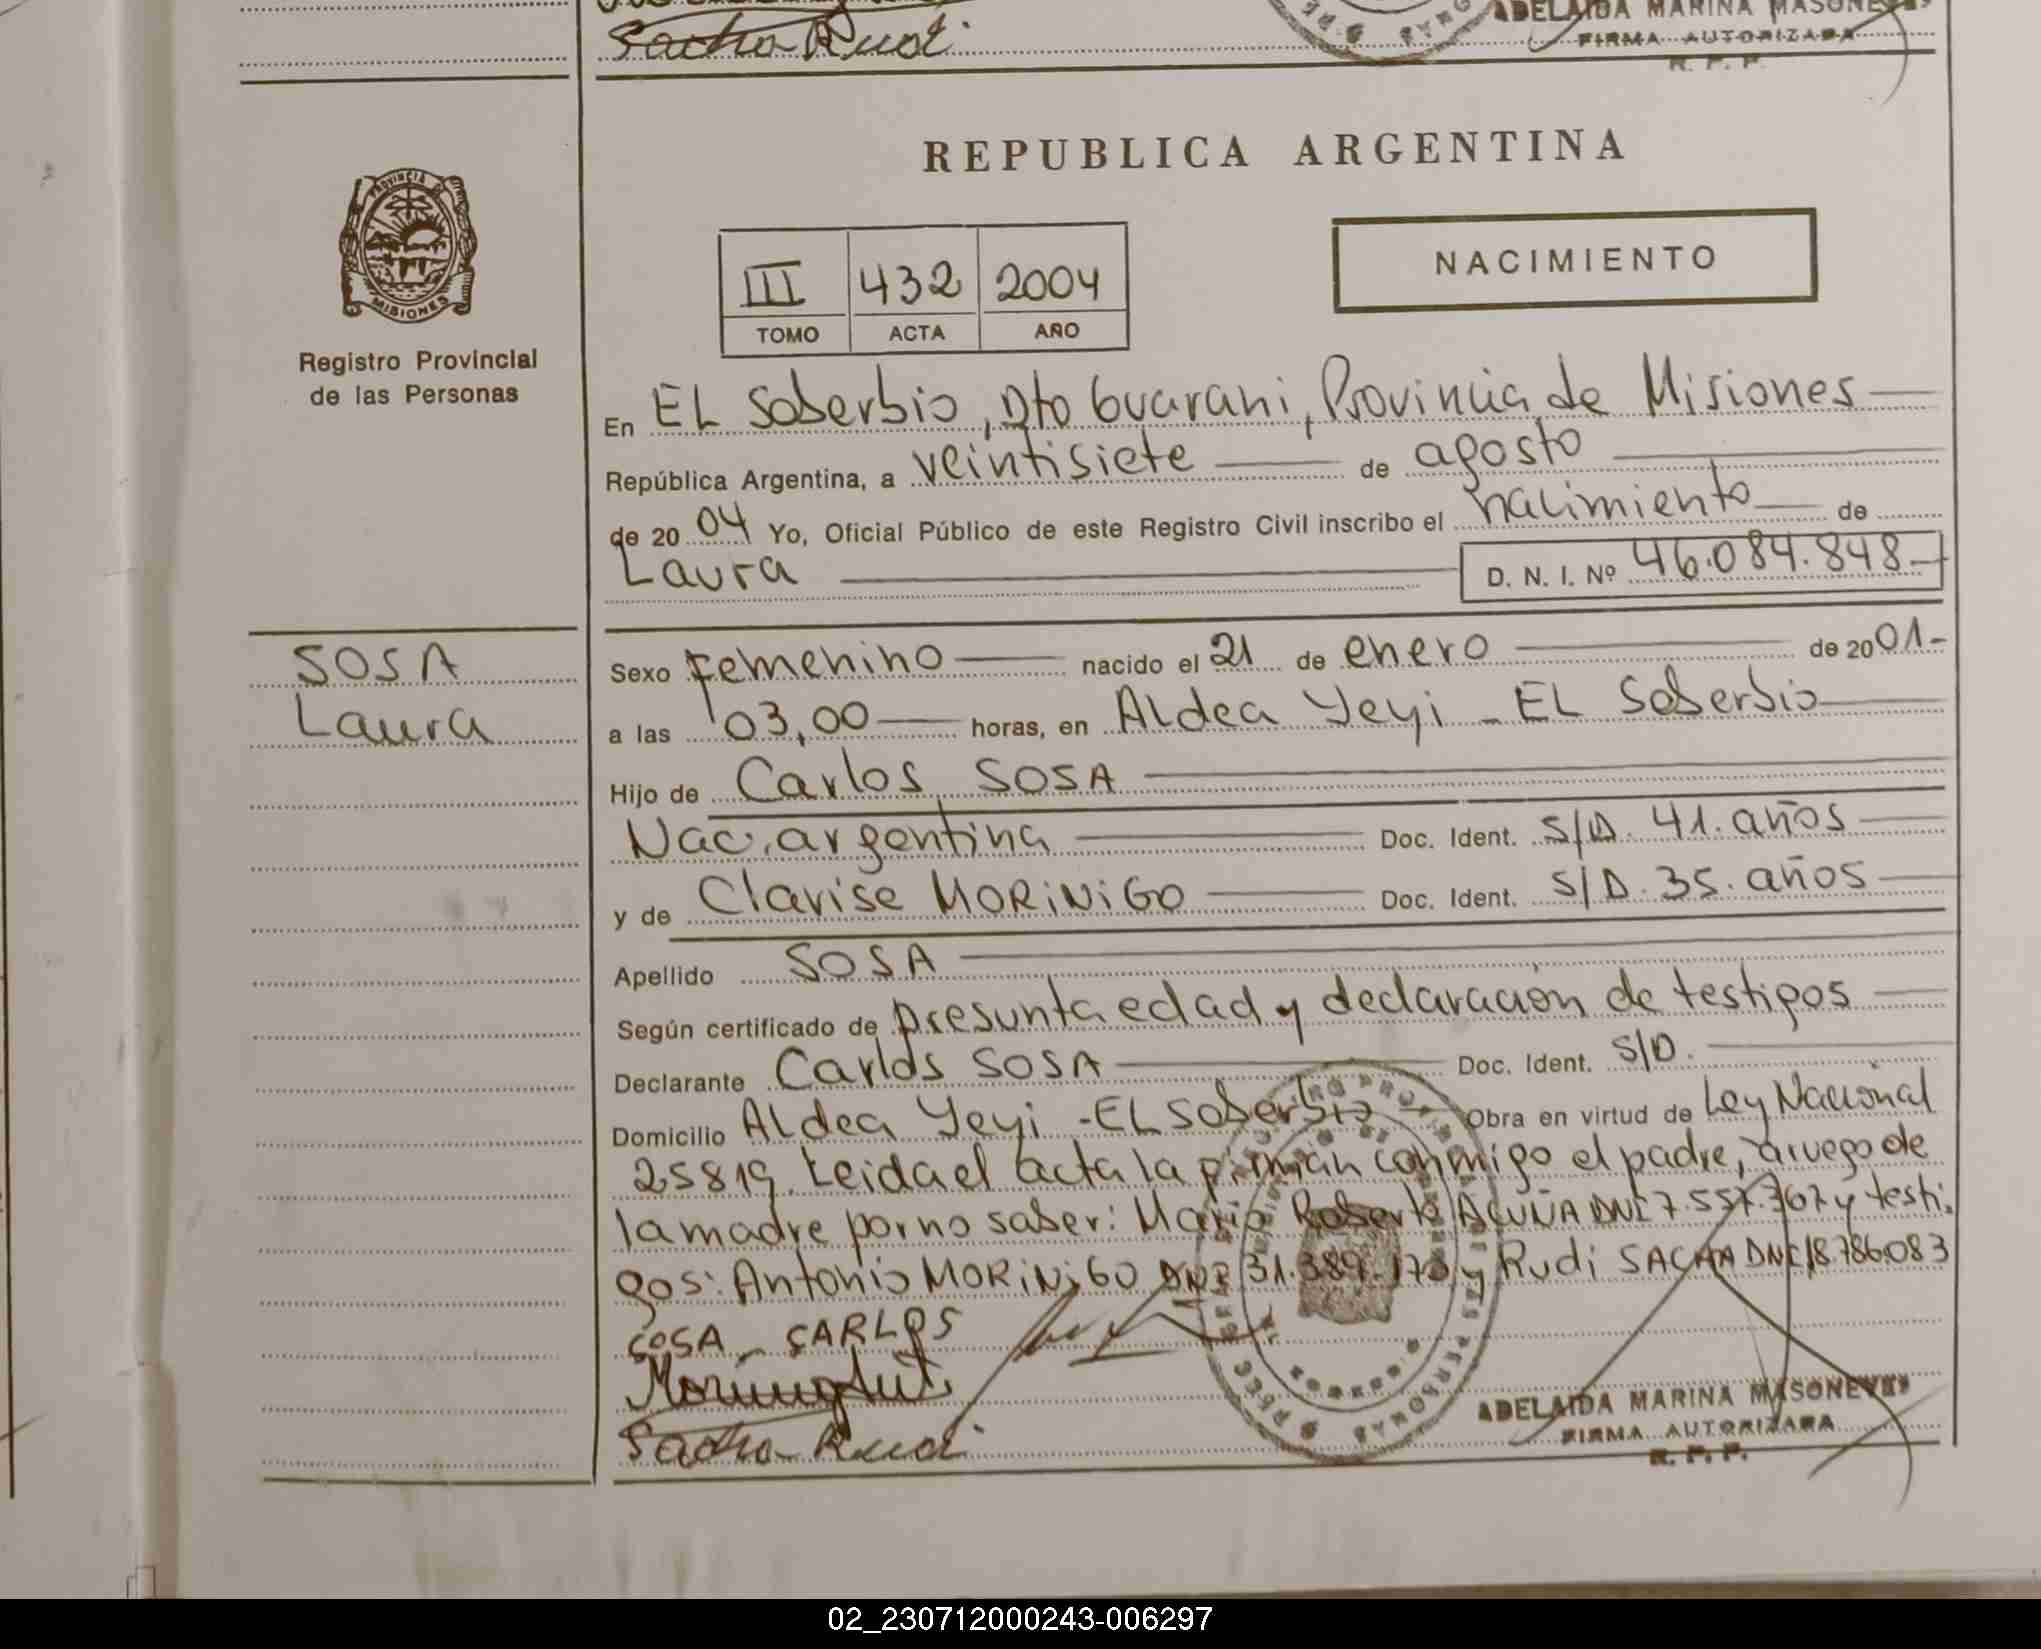 Sacha Rudi
ADELAIDA MARINA MASONEVES
FIRMA AUTORIZADA
R. P. P.
REPUBLICA ARGENTINA
PROVINCIA DE
MISIONES
Registro Provincial
de las Personas
III 432 2004
TOMO ACTA AÑO
NACIMIENTO
En EL Soberbio, Dto Guarani, Provincia de Misiones
República Argentina, a veintisiete de agosto
de 2004 Yo, Oficial Público de este Registro Civil inscribo el nacimiento de
Laura D. N. I. Nº 46.084.848
SOSA
Laura
Sexo Femenino nacido el 21 de enero de 2001-
a las 03,00 horas, en Aldea Yeyi - EL Soberbio
Hijo de Carlos SOSA
Nac. argentina Doc. Ident. S/D. 41. años
y de Clarise MORiNiGO Doc. Ident. S/D. 35. años
Apellido SOSA
Según certificado de presunta edad y declaración de testigos
Declarante Carlos SOSA Doc. Ident. S/D.
Domicilio Aldea Yeyi - EL Soberbio Obra en virtud de Ley Nacional
25819. Leida el acta la firman conmigo el padre, a ruego de
la madre por no saber: Mario Roberto ACUÑA DNI 7.557.367 y testi-
gos: Antonio MORiNiGO DNI 31.389.173 y Rudi SACHA DNI 18.786.083
SOSA CARLOS
Sacha Rudi
ADELAIDA MARINA MASONEVES
FIRMA AUTORIZADA
R. P. P.
02_230712000243-006297